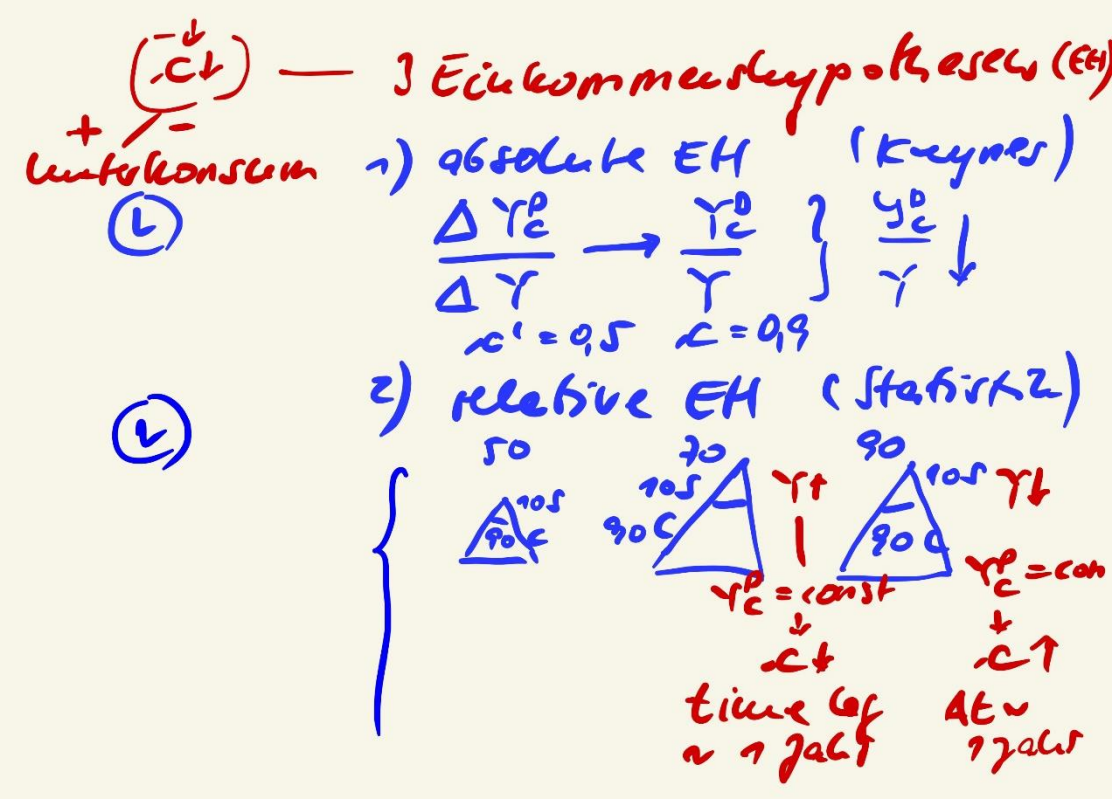 (c↓) — 3 Einkommenshypothesen (EH)
+ -
Unterkonsum
1) absolute EH (Keynes)
L
ΔY_C^D / ΔY → Y_C^D / Y } Y_C^D / Y ↓
c' = 0,5 c = 0,9
2) relative EH (Statistik)
L
50 70 90
10S 10S Y↑ 10S Y↓
90C 90C 90C
Y_C^D = const Y_C^D = con
↓ ↓
c↓ c↑
time lag Δt ~
~ 1 Jahr 1 Jahr